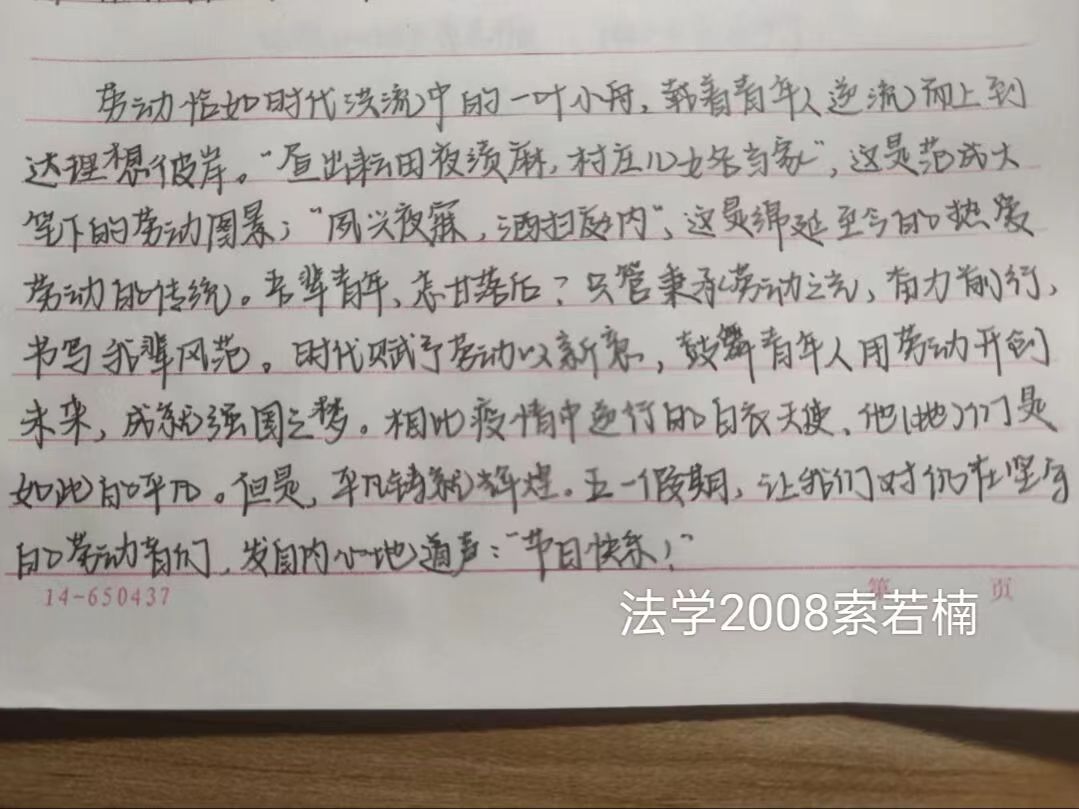 劳动恰如时代洪流中的一叶小舟，载着青年人逆流而上到
达理想彼岸。“昼出耘田夜绩麻，村庄儿女各当家”，这是范成大
笔下的劳动图景；“夙兴夜寐，洒扫庭内”，这是绵延至今的热爱
劳动的传统。吾辈青年，怎甘落后？只管秉承劳动之光，奋力前行，
书写我辈风范。时代赋予劳动以新意，鼓舞青年人用劳动开创
未来，成就强国之梦。相比疫情中逆行的白衣天使，他(她)们是
如此的平凡。但是，平凡铸就辉煌。五一假期，让我们对仍在坚守
的劳动者们，发自内心地道声：“节日快乐！”
14-650437
第 页
法学2008索若楠